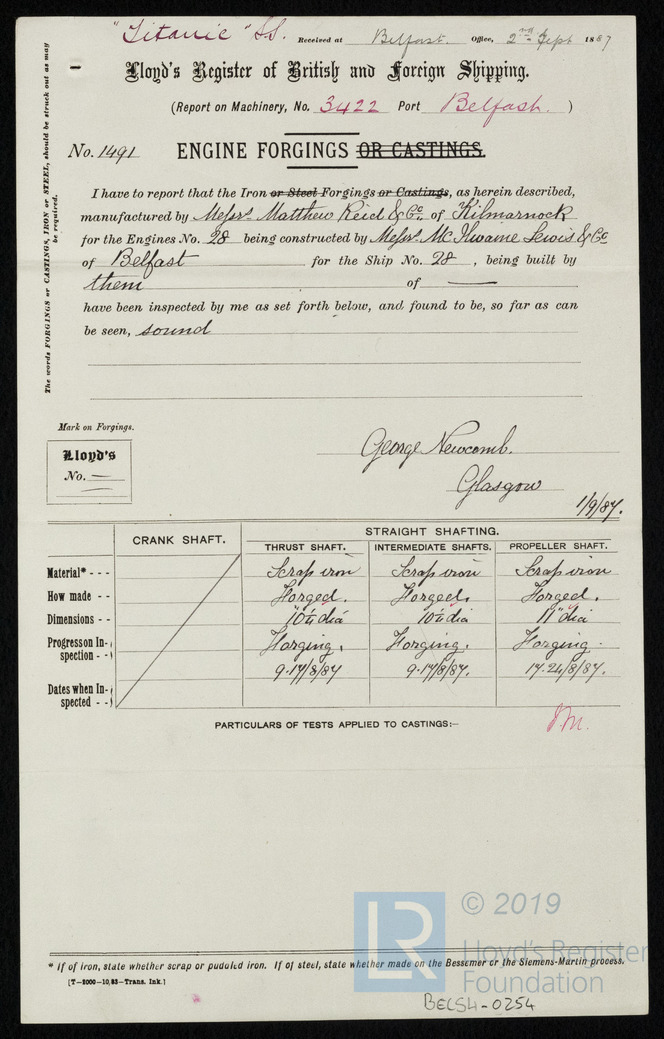 "Titanic" S.S. Received at Belfast. Office, 2nd Sept 1887
Lloyd's Register of British and Foreign Shipping.
(Report on Machinery, No. 3422 Port Belfast. )
No. 1491 ENGINE FORGINGS OR CASTINGS.
The words FORGINGS or CASTINGS, IRON or STEEL, should be struck out as may
be required.
I have to report that the Iron or Steel Forgings or Castings, as herein described,
manufactured by Messrs Matthew Reid & Co. of Kilmarnock
for the Engines No. 28 being constructed by Messrs McIlwaine Lewis & Co
of Belfast for the Ship No. 28 , being built by
them of
have been inspected by me as set forth below, and found to be, so far as can
be seen, sound
Mark on Forgings.
Lloyd's
No.
George Newcomb.
Glasgow
1/9/87.
CRANK SHAFT. STRAIGHT SHAFTING.
THRUST SHAFT. INTERMEDIATE SHAFTS. PROPELLER SHAFT.
Material* - - - Scrap iron Scrap iron Scrap iron
How made - - Forged. Forged. Forged.
Dimensions - - dia dia 11" dia
Progress on In-
spection - - Forging. Forging. Forging.
Dates when In-
spected - - 9.17/8/87 9.17/8/87. 17.24/8/87.
PARTICULARS OF TESTS APPLIED TO CASTINGS:—
J.M.
© 2019
LR
Lloyd's Register
Foundation
* If of iron, state whether scrap or puddled iron. If of steel, state whether made on the Bessemer or the Siemens-Martin process.
[T—2000—10,83—Trans. Ink.]
BELS4-0254